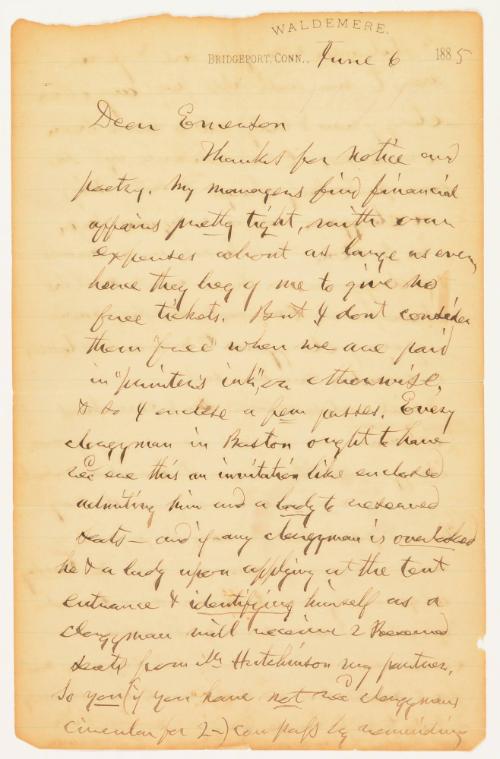 WALDEMERE.
BRIDGEPORT, CONN., June 6 1885
Dear Emerson
Thanks for notice and
poetry. My managers find financial
affairs pretty tight, with our
expenses about as large as ever,
hence they beg of me to give no
free tickets. But I dont consider
them "free" when we are paid
in "printer's ink", or otherwise,
& so I enclose a few passes. Every
clergyman in Boston ought to have
recd this an invitation like enclosed
admitting him and a lady to reserved
seats – and if any clergyman is overlooked
he & a lady upon applying at the tent
entrance & identifying himself as a
clergyman will receive 2 Reserved
seats from Mr Hutchinson my partner.
So you (if you have not recd clergymans
circular for 2 –) can pass by reminding